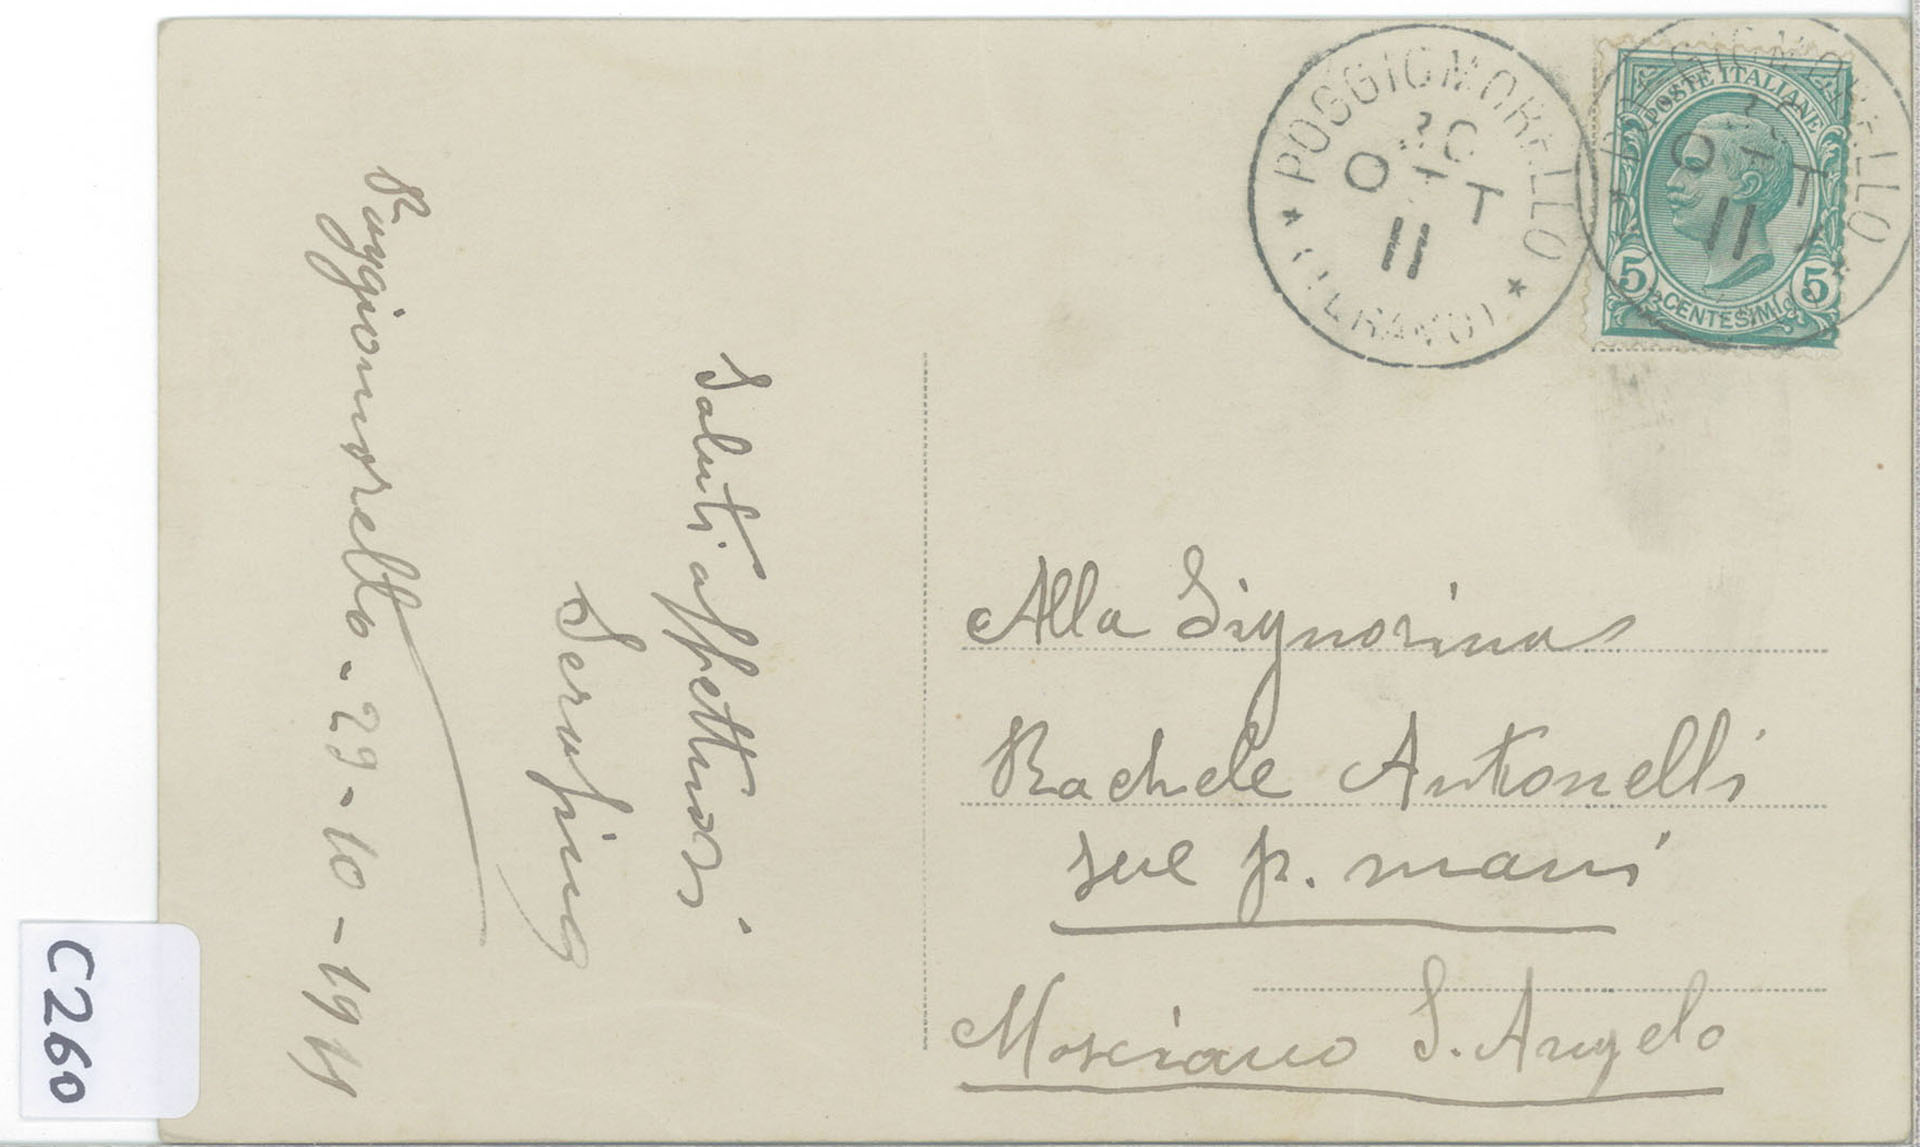 POGGIOMORELLO
30
OTT
11
(TERAMO)
POSTE ITALIANE
5 5
CENTESIMI
POGGIOMORELLO
30
OTT
11
Poggiomorello - 29 - 10 - 1911
Saluti affettuosi
Serafina
Alla Signorina
Rachele Antonelli
sue p. mani
Mosciano S. Angelo
C260